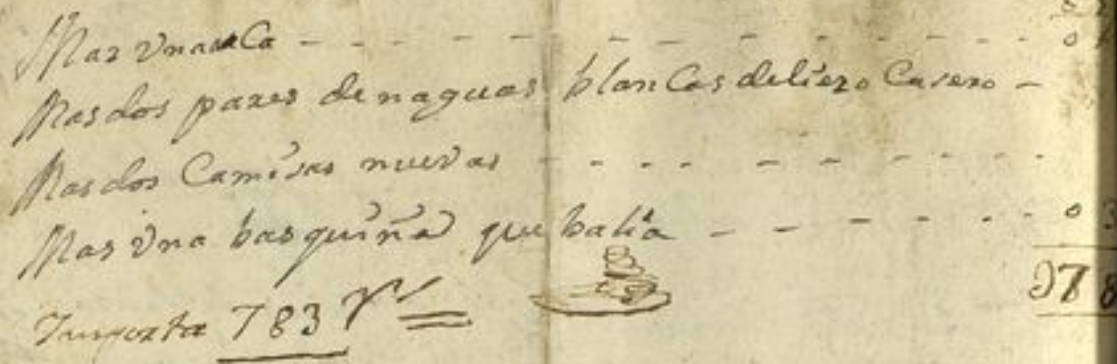 Mas Una aCa - - - - - - - - - - - - 0
Mas dos pares de naguas blanCas de liezo Casero -
Mas dos Camisas nuevas - - - - - - - -
Mas Una basquiña que balia - - - - - - 0 3
Importa 783 rs 078